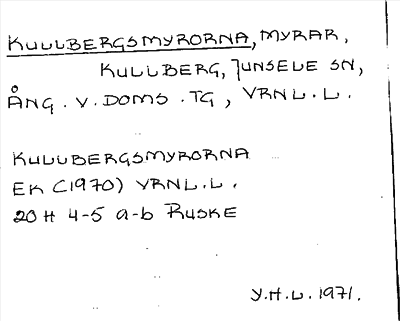 KULLBERGSMYRORNA, MYRAR,
KULLBERG, JUNSELE SN,
ÅNG. V. DOMS. TG, VRNL. L.
KULLBERGSMYRORNA
EK (1970) VRNL. L.
20 H 4-5 a-b RUSKE
Y.H.L. 1971.